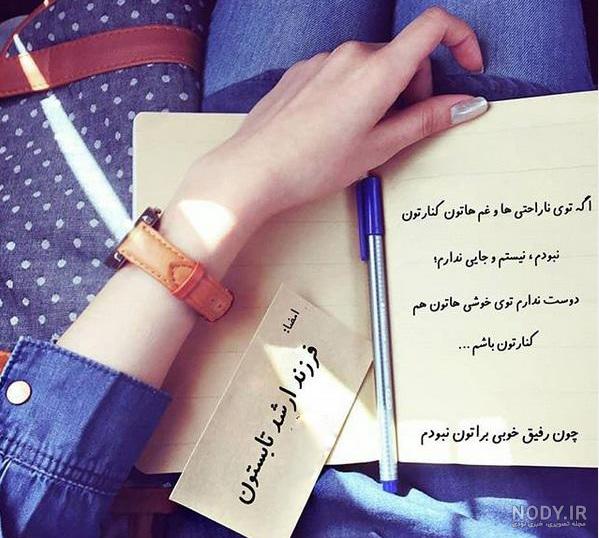 اگه توی ناراحتی ها و غم هاتون کنارتون
نبودم ، نیستم و جایی ندارم؛
دوست ندارم توی خوشی هاتون هم
کنارتون باشم ...
چون رفیق خوبی براتون نبودم
امضا:
فرزند ارشد تابستون
NODY.IR
مجله تصویری، خبری نودی